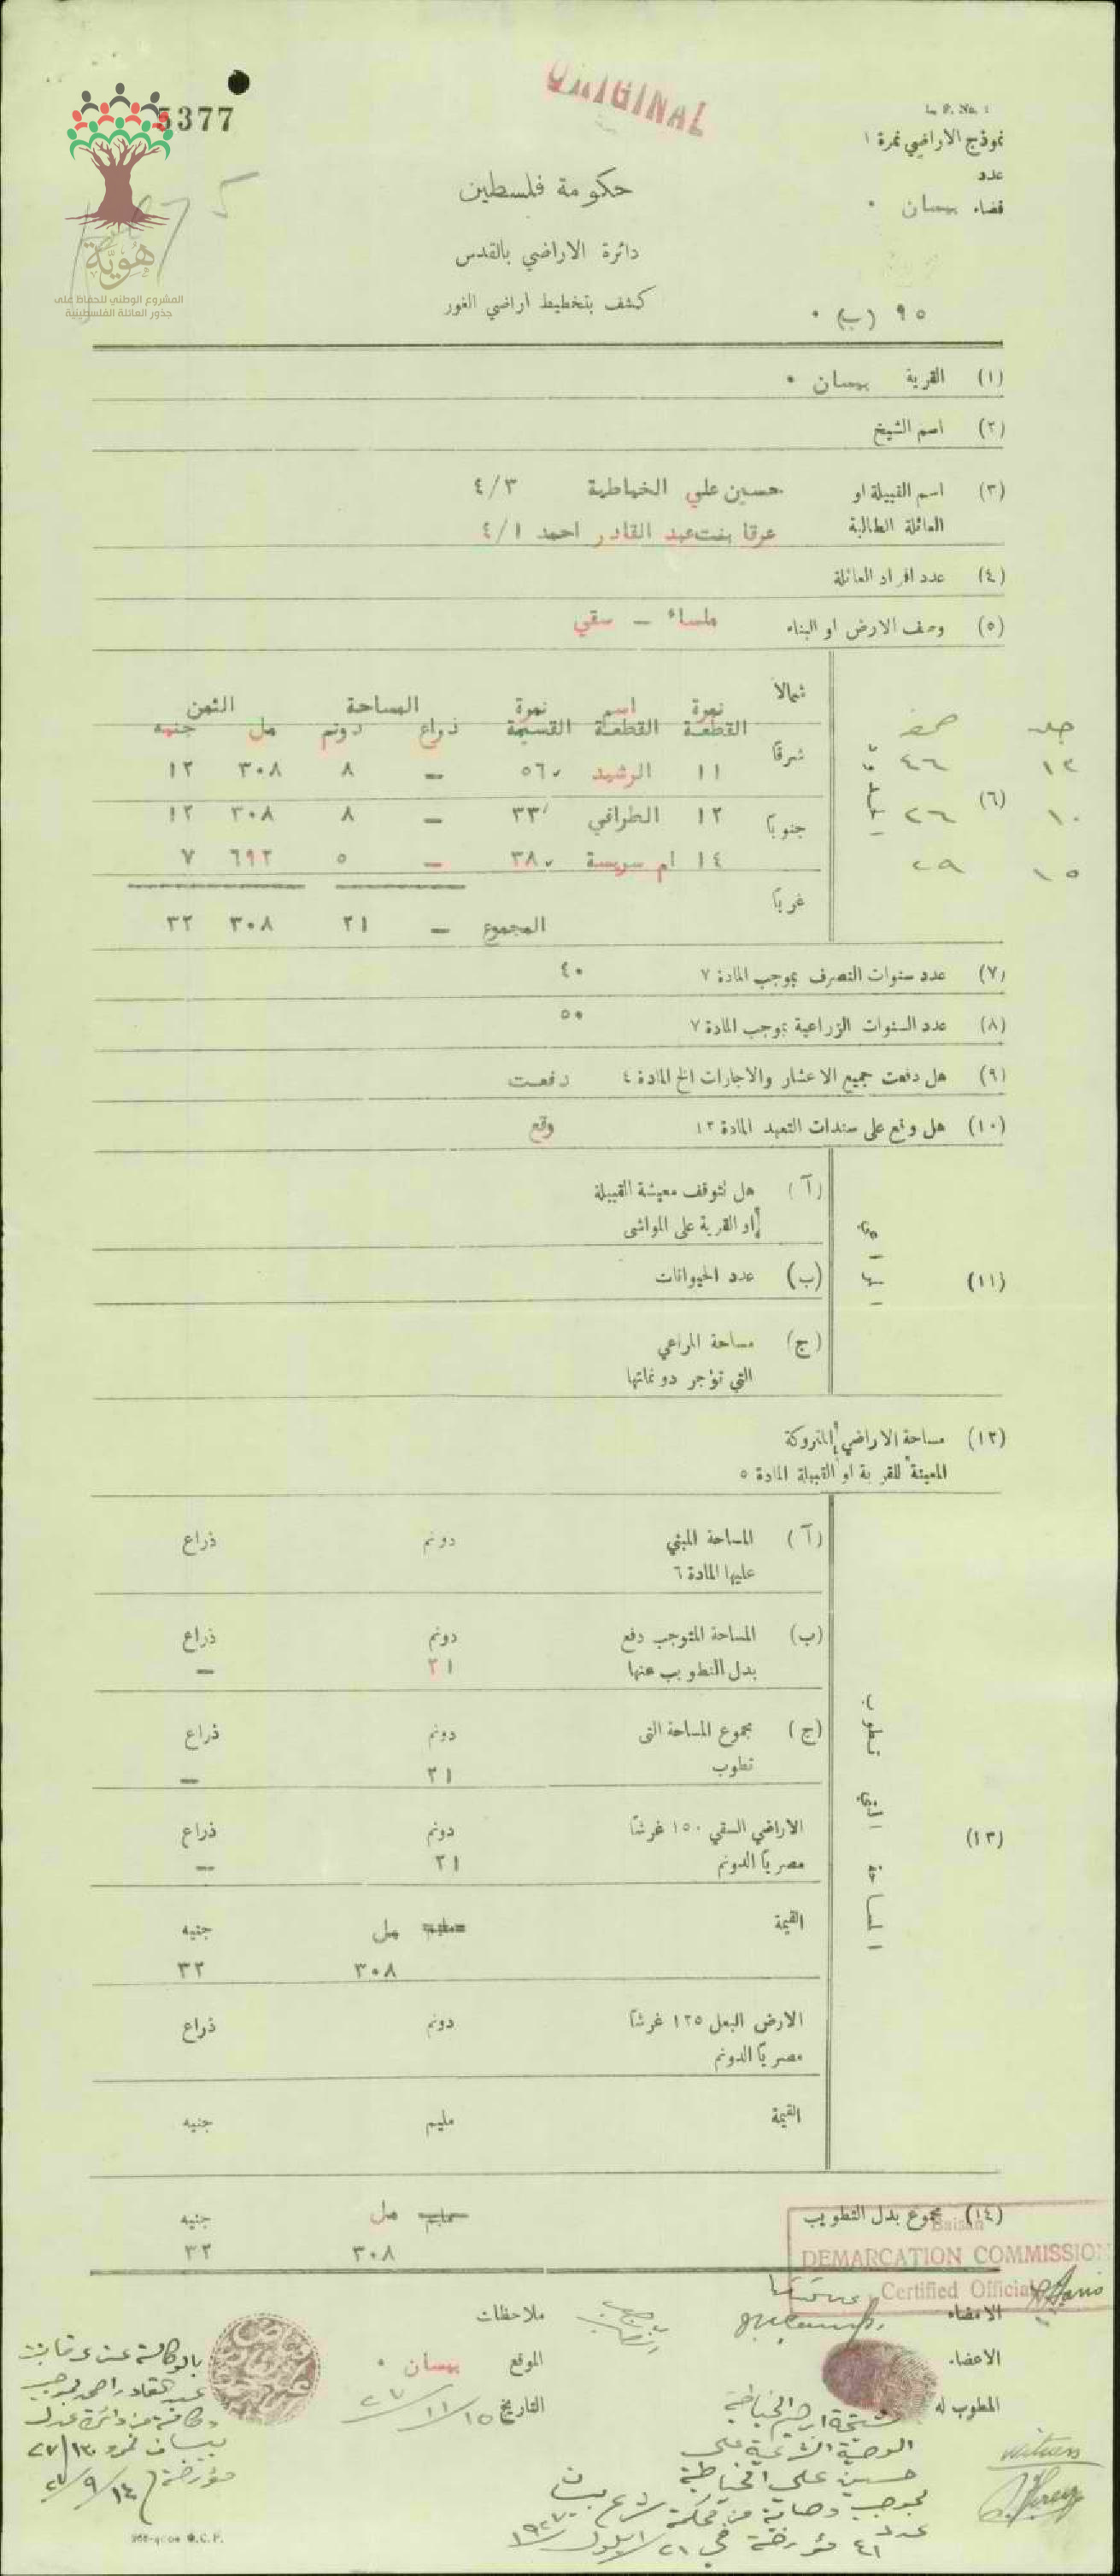 ORIGINAL
5377
هوية
المشروع الوطني للحفاظ على
جذور العائلة الفلسطينية
L. P. No. 1
نموذج الاراضي نمرة ١
عدد
قضاء بيسان
حكومة فلسطين
دائرة الاراضي بالقدس
كشف بتخطيط اراضي الغور
٩٥ (ب)
(١) القرية بيسان
(٢) اسم الشيخ
(٣) اسم القبيلة او حسين علي الخياطية ٤/٣
العائلة الطالبة عرقا بنت عبد القادر احمد ٤/١
(٤) عدد افراد العائلة
(٥) وصف الارض او البناء ملساء – سقي
(٦)
شمالا
شرقا
جنوبا
غربا
نمرة القطعة اسم القطعة نمرة القسيمة المساحة ذراع دونم الثمن مل جنيه
جلد صحفة
١٢ ٤٦ ١١ الرشيد ٥٦ – ٨ ٣٠٨ ١٢
١٠ ٢٦ ١٢ الطرافي ٣٣ – ٨ ٣٠٨ ١٢
١٥ ٢٩ ١٤ ام سريسة ٣٨ – ٥ ٦٩٢ ٧
المجموع – ٢١ ٣٠٨ ٣٢
(٧) عدد سنوات التصرف بموجب المادة ٧ ٤٠
(٨) عدد السنوات الزراعية بموجب المادة ٧ ٥٠
(٩) هل دفعت جميع الاعشار والاجارات الخ المادة ٤ دفعت
(١٠) هل وقع على سندات التعهد المادة ١٢ وقع
(١١)
(آ) هل تتوقف معيشة القبيلة
او القرية على المواشي
(ب) عدد الحيوانات
(ج) مساحة المراعي
التي تؤجر دونماتها
(١٢) مساحة الاراضي المتروكة
المعينة للقرية او القبيلة المادة ٥
(١٣) المساحة التي تطوب
(آ) المساحة المبني دونم ذراع
عليها المادة ٦
(ب) المساحة المتوجب دفع دونم ذراع
بدل التطويب عنها ٢١ –
(ج) مجموع المساحة التي دونم ذراع
تطوب ٢١ –
الاراضي السقي ١٥٠ غرشا دونم ذراع
مصريا الدونم ٢١ –
القيمة مليم مل جنيه
٣٠٨ ٣٢
الارض البعل ١٢٥ غرشا دونم ذراع
مصريا الدونم
القيمة مليم جنيه
(١٤) مجموع بدل التطويب مليم مل جنيه
٣٠٨ ٣٢
Baisan
DEMARCATION COMMISSION
Certified Official
الامضاء ملاحظات
الاعضاء الموقع بيسان
المطوب له التاريخ ١٥/١١/٢٧
الوصية الشرعية على
حسين علي الخياطية
بموجب وصاية من محكمة شرع بيسان
عدد ٤١ مؤرخة في ٢١ ايلول ١٩٢٧
بالوكالة عن عرقا بنت
عبد القادر احمد بموجب
وكالة من دائرة عدل
بيسان نمرو ٢٧/١٣٠
مؤرخة ١٤/٩/٢٧